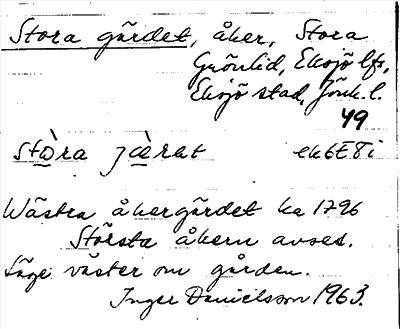 Stora gärdet, åker, Stora
Grönlid, Eksjö lfs,
Eksjö stad, Jönk. l.
49
stòra jæ̀rat ek6E8i
Wästra åkergärdet ka 1796
Största åkern avses.
Läge väster om gården.
Inger Danielsson 1963.